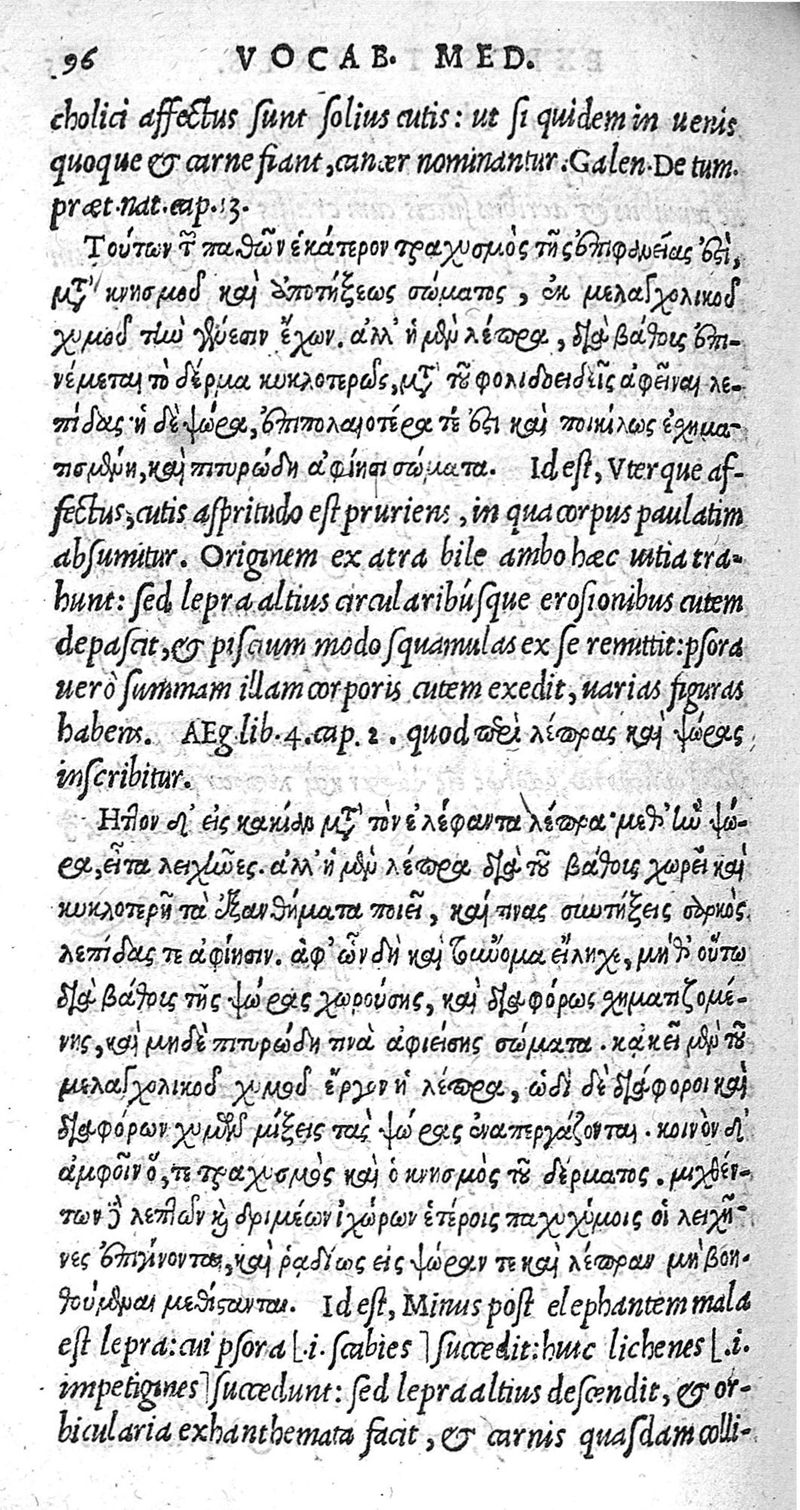 96 VOCAB. MED.
cholici affectus sunt solius cutis: ut si quidem in uenis
quoque & carne fiant, cancer nominantur. Galen. De tum.
præt. nat. cap. 13.
Τούτων τῶν παθῶν ἑκάτερον τραχυσμὸς τῆς ἐπιφανείας ἐστὶ,
μετὰ κνησμοῦ καὶ ἀποτήξεως σώματος, ἐκ μελαγχολικοῦ
χυμοῦ τὴν γένεσιν ἔχον. ἀλλ' ἡ μὲν λέπρα, διὰ βάθους ἐπι-
νέμεται τὸ δέρμα κυκλοτερῶς, μετὰ τοῦ φολιδοειδεῖς ἀφεῖναι λε-
πίδας· ἡ δὲ ψώρα, ἐπιπολαιοτέρα τέ ἐστι καὶ ποικίλως ἐχημα-
τισμένη, καὶ πιτυρώδη ἀφίησι σώματα. Id est, Vterque af-
fectus, cutis aspritudo est pruriens, in qua corpus paulatim
absumitur. Originem ex atra bile ambo hæc uitia tra-
hunt: sed lepra altius circularibúsque erosionibus cutem
depascit, & piscium modo squamulas ex se remittit: psora
uerò summam illam corporis cutem exedit, uarias figuras
habens. AEg. lib. 4. cap. 2. quod περὶ λέπρας καὶ ψώρας
inscribitur.
Ητλον δ' εἰς κακίαν μετὰ τὸν ἐλέφαντα λέπρα· μεθ' ἣν ψώ-
ρα, εἶτα λειχῆνες. ἀλλ' ἡ μὲν λέπρα διὰ τοῦ βάθους χωρεῖ καὶ
κυκλοτερῆ τὰ ἐξανθήματα ποιεῖ, καί τινας συντήξεις σαρκὸς
λεπίδας τε ἀφίησιν. ἀφ' ὧν δὴ καὶ τοὔνομα εἴληχε, μήθ' οὕτω
διὰ βάθους τῆς ψώρας χωρούσης, καὶ διαφόρως χηματιζομέ-
νης, καὶ μηδὲ πιτυρώδη τινὰ ἀφιείσης σώματα. κἀκεῖ μὲν τοῦ
μελαγχολικοῦ χυμοῦ ἔργον ἡ λέπρα, ὡδὶ δὲ διάφοροι καὶ
διαφόρων χυμῶν μίξεις τὰς ψώρας ἐναπεργάζονται. κοινὸν δ'
ἀμφοῖν ὅ, τε τραχυσμὸς καὶ ὁ κνησμὸς τοῦ δέρματος. μιχθέν-
των δὲ λεπτῶν καὶ δριμέων ἰχώρων ἑτέροις παχυχύμοις οἱ λειχῆ-
νες ἐπιγίνονται, καὶ ῥαδίως εἰς ψώραν τε καὶ λέπραν μὴ βοη-
θούμεναι μεθίστανται. Id est, Minus post elephantem mala
est lepra: cui psora [.i. scabies] succedit: huic lichenes [.i.
impetigines] succedunt: sed lepra altius descendit, & or-
bicularia exhanthemata facit, & carnis quasdam colli-